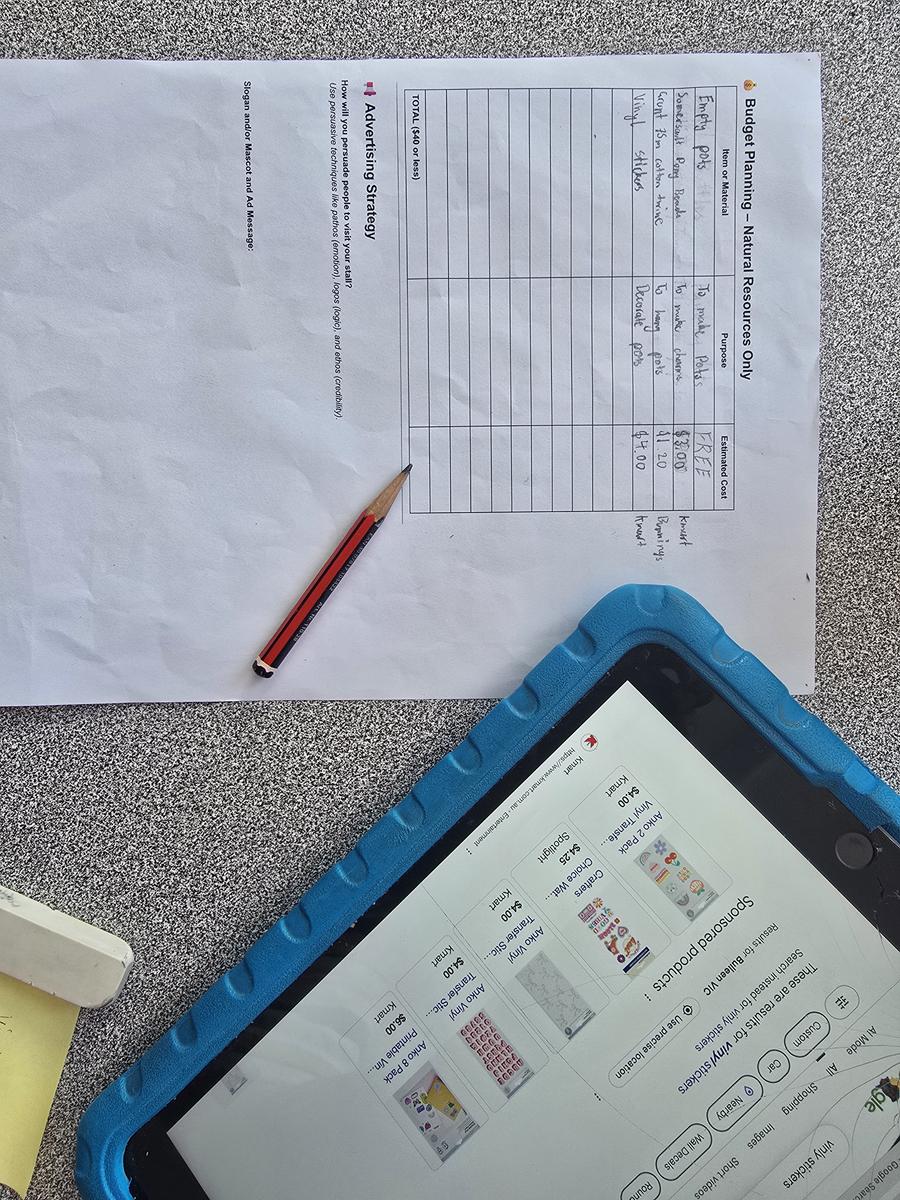 💰 Budget Planning – Natural Resources Only
Item or Material Purpose Estimated Cost
Empty pots To make Pots FREE
Pony Beads To make charms $3.00 Kmart
75m cotton twine To hang pots $1.20 Bunnings
Vinyl stickers Decorate pots $4.00 Kmart
TOTAL ($40 or less)
📢 Advertising Strategy
How will you persuade people to visit your stall?
Use persuasive techniques like pathos (emotion), logos (logic), and ethos (credibility).
Slogan and/or Mascot and Ad Message:
gle
Google Sear
vinly stickers
AI Mode
All
Shopping
Images
Short videos
Custom
Car
Nearby
Wall Decals
Roun
These are results for Vinyl stickers
Search instead for vinly stickers
Results for Bulleen VIC
Use precise location
Sponsored products
Anko 2 Pack
Vinyl Transfe...
$4.00
Kmart
Crafters
Choice Wat...
$4.25
Spotlight
Anko Vinyl
Transfer Stic...
$4.00
Kmart
Anko Vinyl
Transfer Stic...
$4.00
Kmart
Anko 8 Pack
Printable Vin...
$6.00
Kmart
Kmart
https://www.kmart.com.au › Entertainment